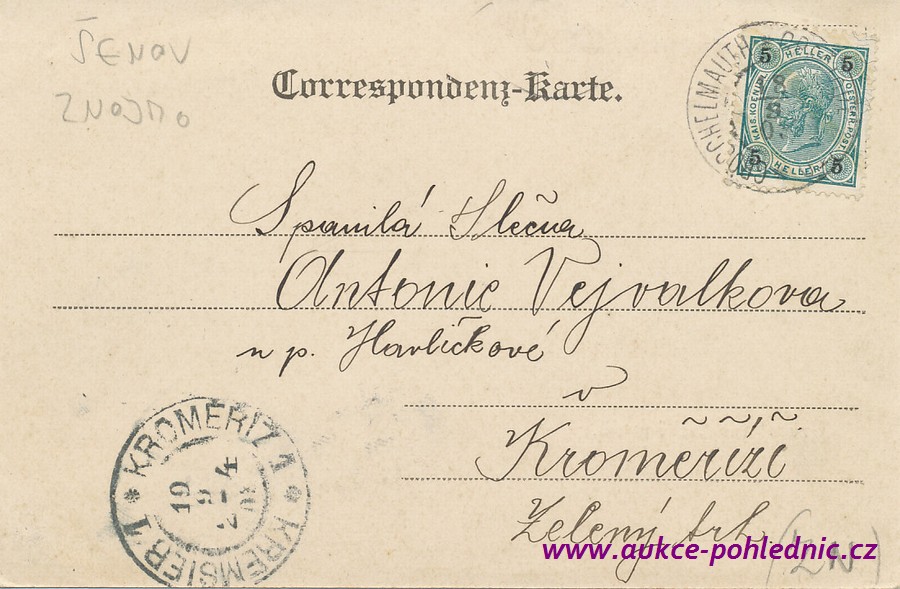 ŠENOV
ZNOJMO
Correspondenz-Karte.
5 HELLER 5
KAIS. KOENIGL. OESTERR. POST
5 HELLER 5
Spanilá Slečna
Antonie Vejvalkova
u p. Havlíčkové
v
Kroměříži
Zelený trh
KROMĚŘÍŽ 1
* KREMSIER 1 *
www.aukce-pohlednic.cz
(ZN)